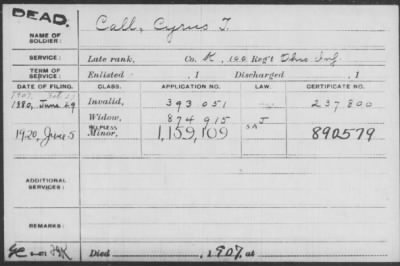 DEAD.
NAME OF SOLDIER: Call, Cyrus T.
SERVICE: Late rank, Co. K, 100 Reg't Ohio Inf.
TERM OF SERVICE: Enlisted , 1 Discharged , 1
DATE OF FILING. CLASS. APPLICATION NO. LAW. CERTIFICATE NO.
1880, June 29 Invalid, 393 051 237 800
1907 Widow, 874 915
1920, June 5 HELPLESS Minor, 1,159,109 890579
ADDITIONAL SERVICES:
REMARKS:
Died , 1907, at